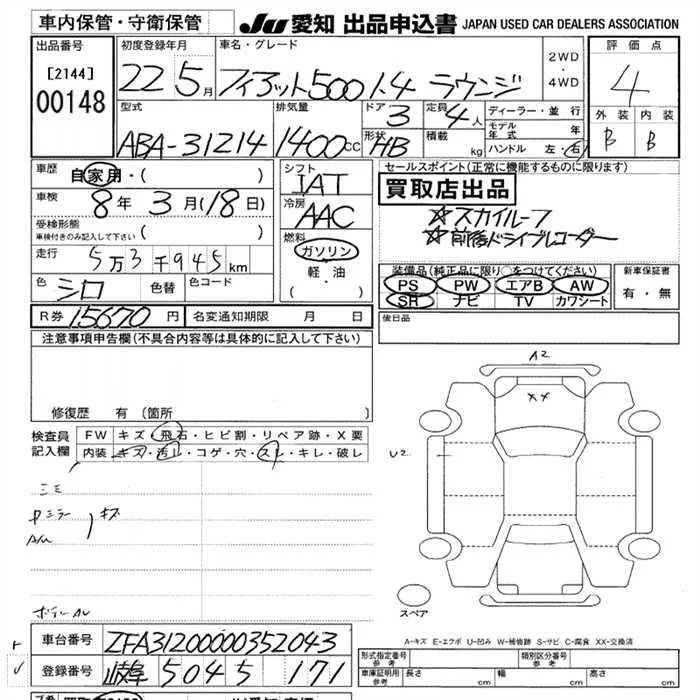 車内保管・守衛保管
JU愛知 出品申込書 JAPAN USED CAR DEALERS ASSOCIATION
出品番号
[2144]
00148
初度登録年月
22 5月
車名・グレード
フィアット500 1.4 ラウンジ
2WD・4WD
評価点
4
外装 内装
B B
型式
ABA-31214
排気量
1400cc
ドア 3
形状 HB
定員 4人
積載 kg
ディーラー・並行
モデル年式 年
ハンドル 左・右
車歴
自家用・( )
車検
8年 3月(18日)
受検形態
車検付きのみ記入して下さい ( )
走行
5万3千945km
色 シロ 色替 色コード
シフト
IAT
冷房
AAC
燃料
ガソリン
軽・油
( ・ )
セールスポイント(正常に機能するものに限ります)
買取店出品
☆スカイルーフ
☆前後ドライブレコーダー
装備品(純正品に限り○をつけてください)
PS PW エアB AW
SR ナビ TV カワシート
新車保証書
有・無
R券 15670円 名変通知期限 月 日
後日品
注意事項申告欄(不具合内容等は具体的に記入して下さい)
修復歴 有(箇所
検査員記入欄
FW キズ・飛石・ヒビ割・リペア跡・X要
内装 キズ・汚レ・コゲ・穴・スレ・キレ・破レ
A2
XX
U2
スペア
A-キズ E-エクボ U-凹み W-補修跡 S-サビ C-腐食 XX-交換済
車台番号 ZFA31200000352043
登録番号 岐阜 504 5 171
形式指定番号 参考 類別区分番号 参考
車庫証明用 参考 長さ cm 幅 cm 高さ cm